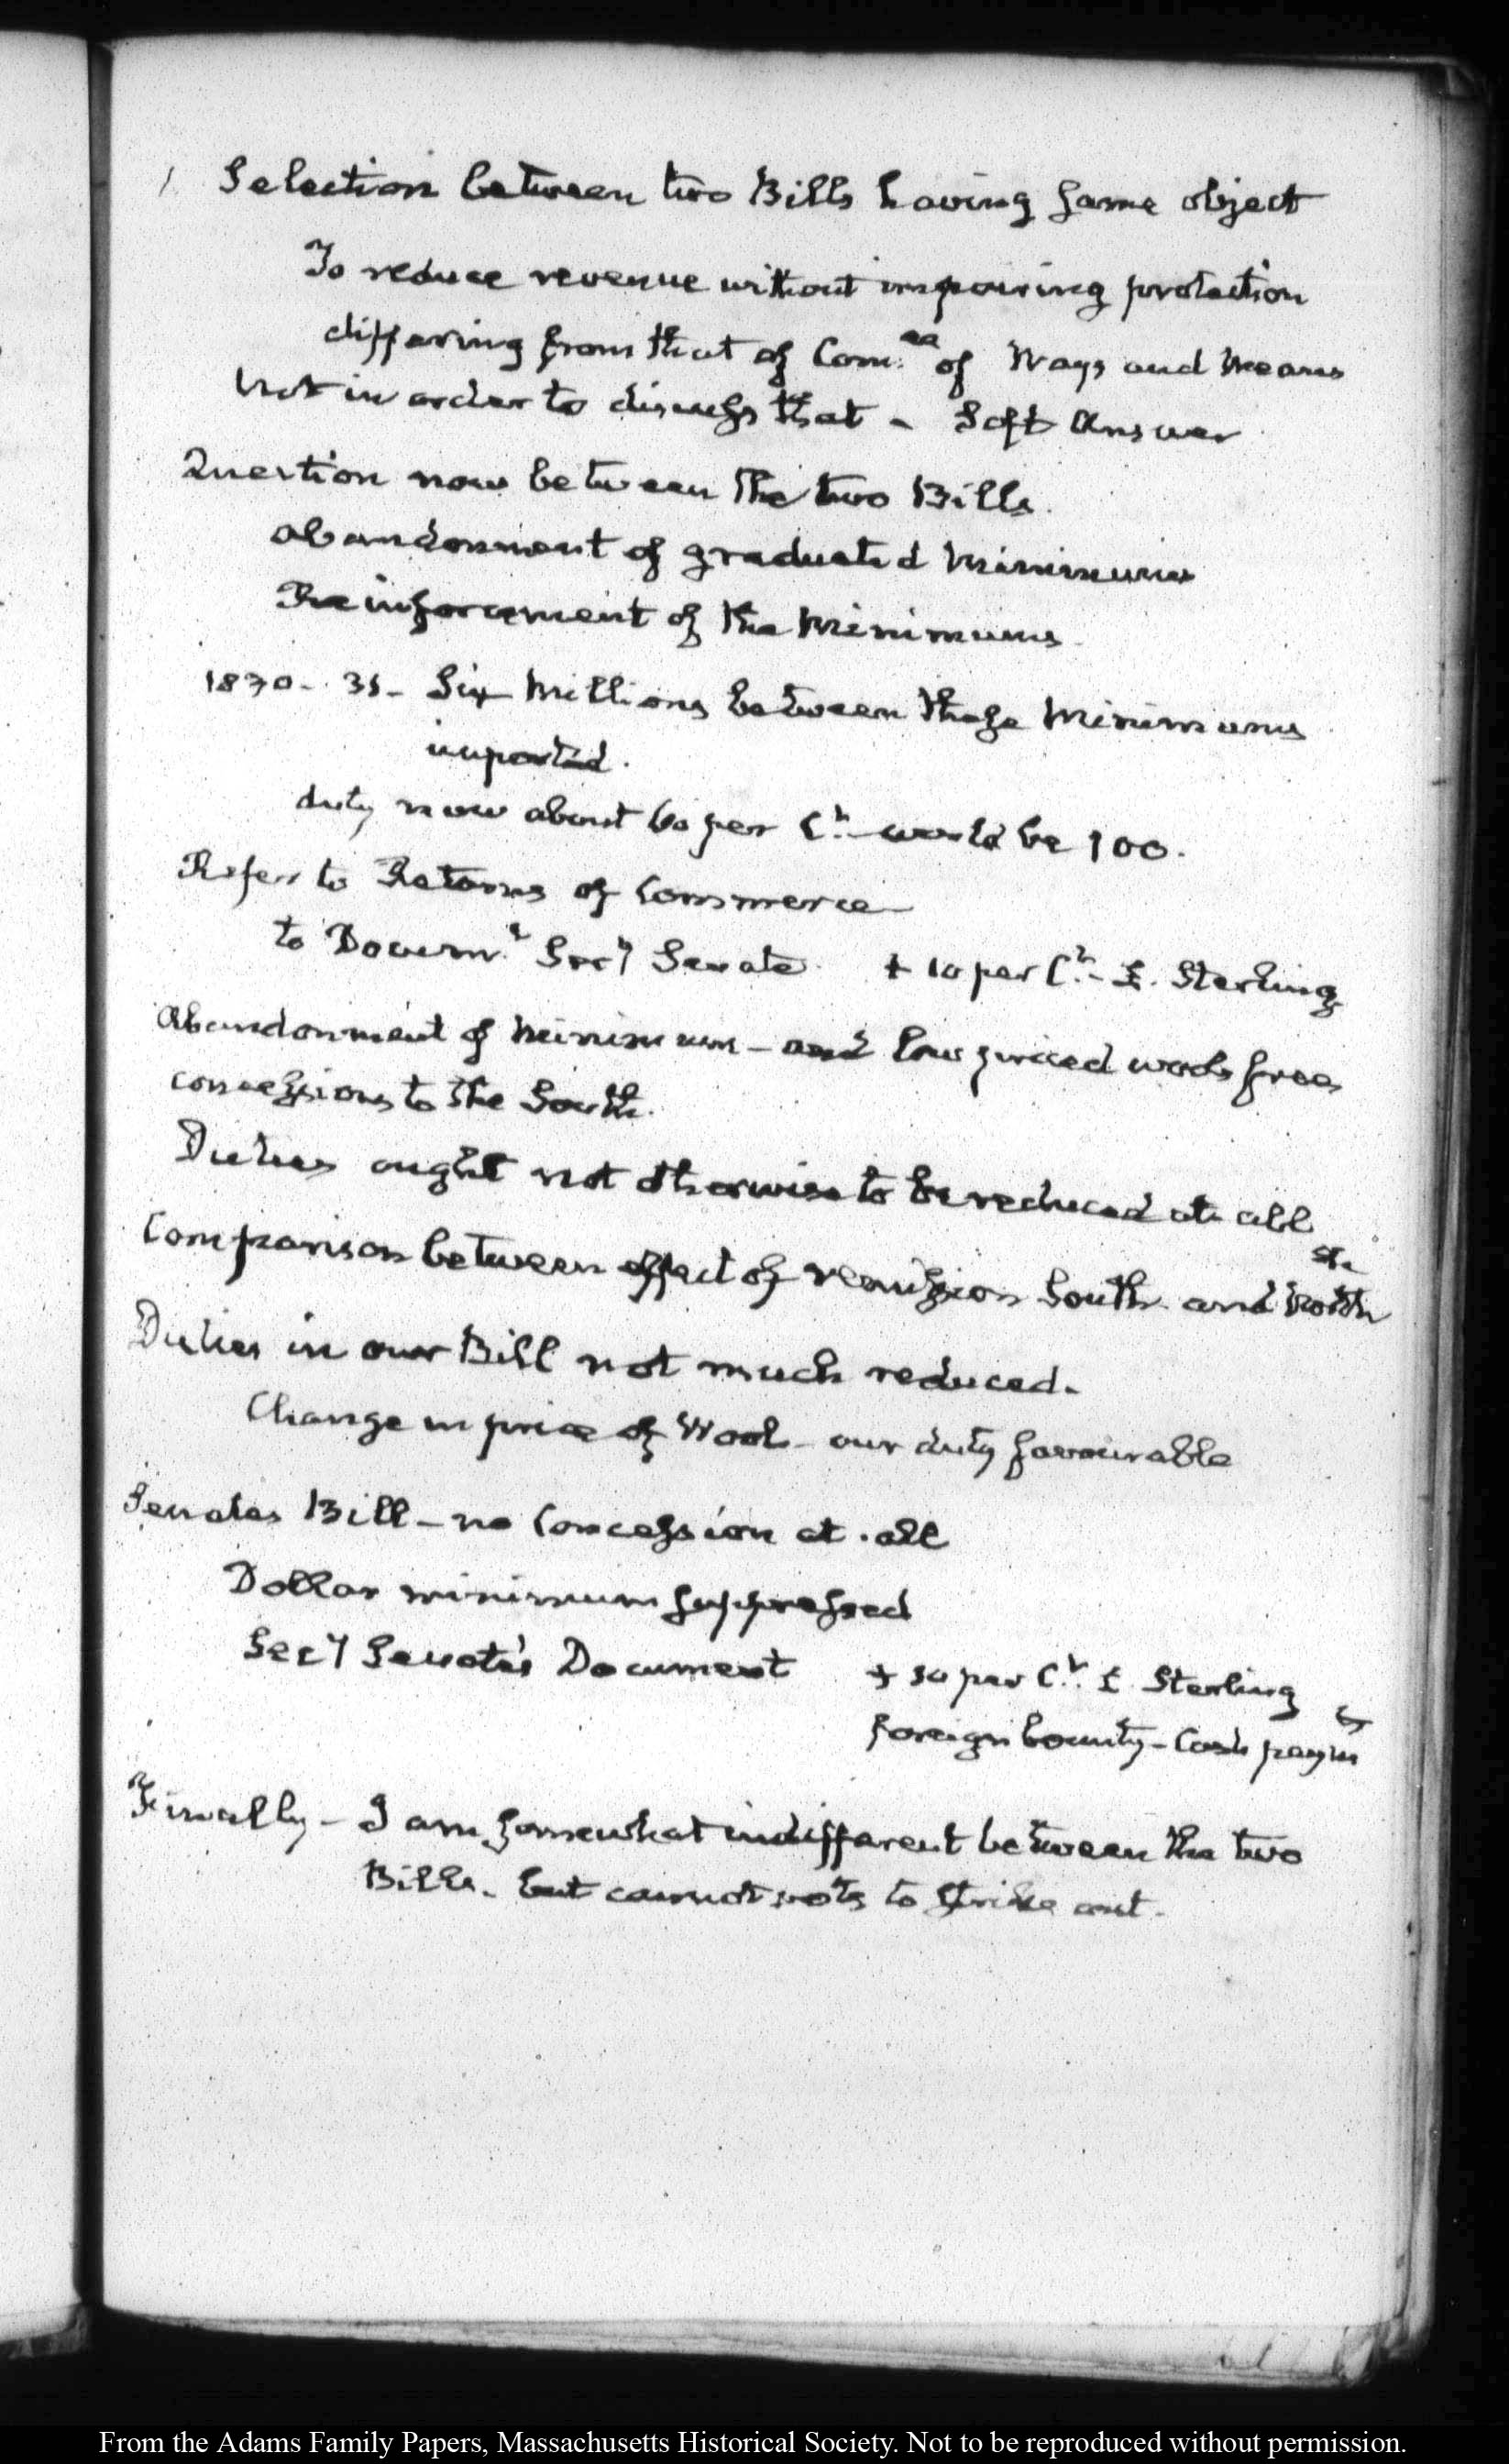 1. Selection between two Bills having same object
To reduce revenue without impairing protection
differing from that of Com.ee of Ways and Means
Not in order to discuss that - Soft Answer
Question now between the two Bills.
abandonment of graduated Minimums
Reinforcement of the Minimums.
1830-31- Six Millions between those Minimums
imported.
duty now about 60 per Ct. would be 100.
Refer to Returns of Commerce
to Docum.t Sec'y Senate + 10 per Ct.- £. Sterling
Abandonment of Minimum - and low priced wools free
concessions to the South.
Duties ought not otherwise to be reduced at all
Comparison between effect of remission South and North
Duties in our Bill not much reduced.
Change in price of Wool - our duty favourable
Senates Bill - no Concession at all
Dollar minimum suppressed
Sec'y Senate's Document + 10 per Ct. £ Sterling
foreign bounty - Cash paym.t
Finally - I am somewhat indifferent between the two
Bills. but cannot vote to strike out.
From the Adams Family Papers, Massachusetts Historical Society. Not to be reproduced without permission.